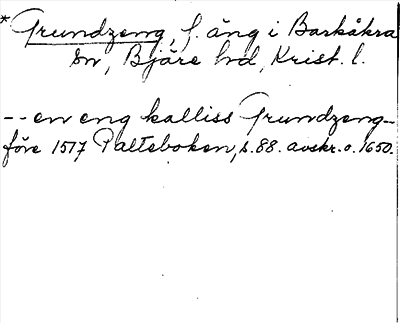 *Grundzeng, f. äng i Barkåkra
sn, Bjäre hd, Krist. l.
-- en eng kalliss Grundzeng--
före 1517 Palteboken, s. 88. avskr. o. 1650.